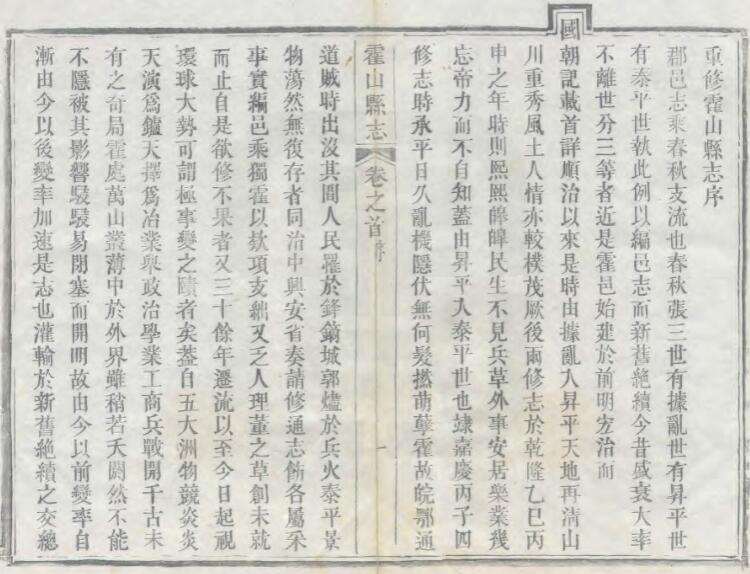 重修霍山縣志序
郡邑志乘春秋支流也春秋張三世有據亂世有昇平世
有泰平世執此例以編邑志而新舊絶續今昔盛衰大率
不離世分三等者近是霍邑始建於前明宏治而
國
朝記載首詳順治以來是時由據亂入昇平天地再淸山
川重秀風土人情亦較樸茂厥後兩修志於乾隆乙巳丙
申之年時則熙熙皡皡民生不見兵革外事安居樂業幾
忘帝力而不自知蓋由昇平入泰平世也逮嘉慶丙子四
修志時承平日久亂機隱伏無何髮撚萌孽霍故皖鄂通
霍山縣志
卷之首
一
道賊時出沒其間人民罹於鋒鏑城郭燼於兵火泰平景
物蕩然無復存者同治中興安省奏請修通志飭各屬采
事實編邑乘獨霍以欵項支絀又乏人理董之草創未就
而止自是欲修不果者又三十餘年遷流以至今日起視
環球大勢可謂極事變之賾者矣葢自五大洲物競炎炎
天演爲鑪天擇爲冶業舉政治學業工商兵戰開千古未
有之奇局霍處萬山叢薄中於外界雖稍若夭閼然不能
不隱被其影響駸駸易閉塞而開明故由今以前變率自
漸由今以後變率加速是志也灌輸於新舊絶續之交總